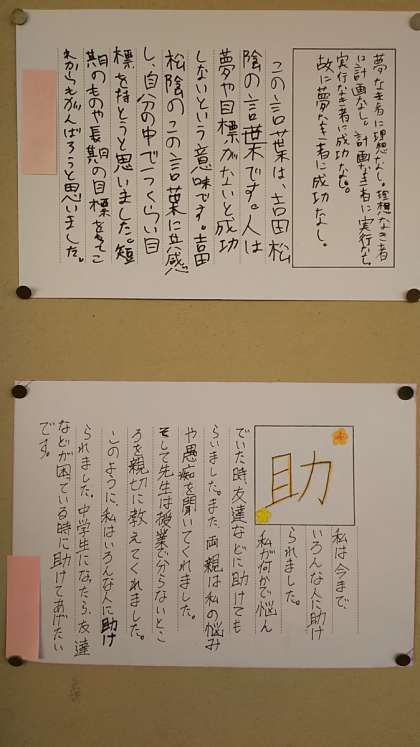 夢なき者に理想なし。理想なき者
に計画なし。計画なき者に実行なし。
実行なき者に成功なし。
故に夢なき者に成功なし。
この言葉は、吉田松
陰の言葉です。人は
夢や目標がないと成功
しないという意味です。吉田
松陰のこの言葉に共感
し、自分の中でつくらい目
標を持とうと思いました。短
期のものや長期の目標をもてこ
れからもがんばろうと思いました。
助
私は今まで
いろんな人に助け
られました。
私が何かで悩ん
でいた時、友達などに助けても
らいました。また、両親は私の悩み
や愚痴を聞いてくれました。
そして先生は授業で分らないとこ
ろを親切に教えてくれました。
このように、私はいろんな人に助け
られました。中学生になったら、友達
などが困っている時に助けてあげたい
です。